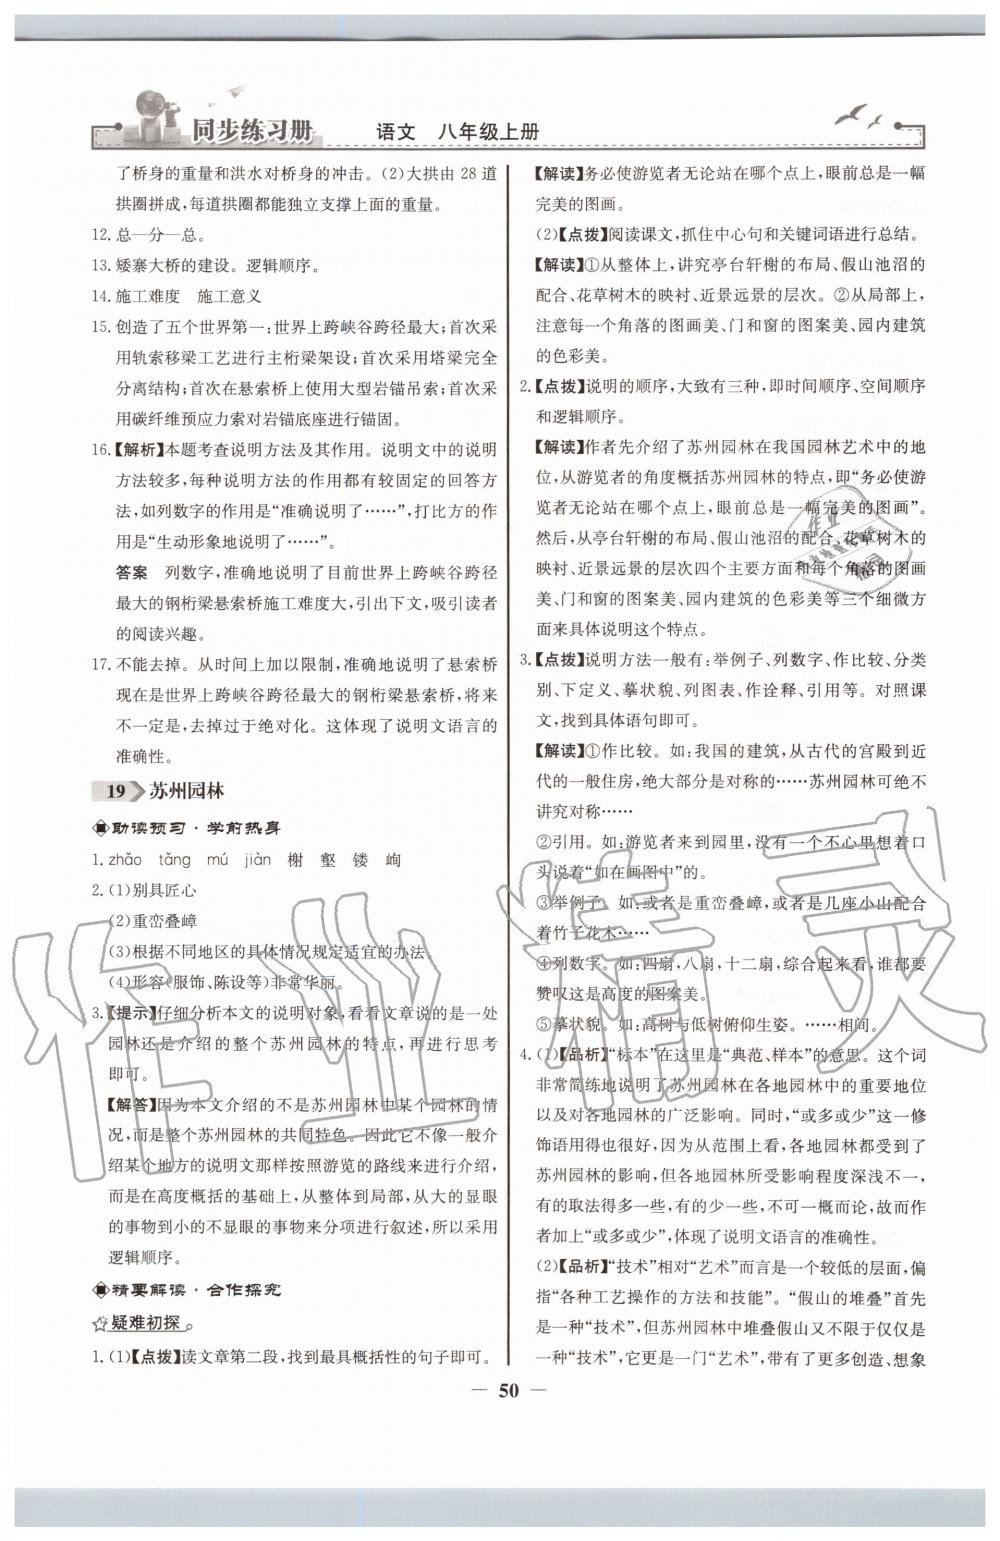 同步练习册 语文 八年级上册
了桥身的重量和洪水对桥身的冲击。(2)大拱由 28 道
拱圈拼成,每道拱圈都能独立支撑上面的重量。
12. 总—分—总。
13. 矮寨大桥的建设。逻辑顺序。
14. 施工难度 施工意义
15. 创造了五个世界第一:世界上跨峡谷跨径最大;首次采
用轨索移梁工艺进行主桁梁架设;首次采用塔梁完全
分离结构;首次在悬索桥上使用大型岩锚吊索;首次采
用碳纤维预应力索对岩锚底座进行锚固。
16.【解析】本题考查说明方法及其作用。说明文中的说明
方法较多,每种说明方法的作用都有较固定的回答方
法,如列数字的作用是“准确说明了……”,打比方的作
用是“生动形象地说明了……”。
答案 列数字,准确地说明了目前世界上跨峡谷跨径
最大的钢桁梁悬索桥施工难度大,引出下文,吸引读者
的阅读兴趣。
17. 不能去掉。从时间上加以限制,准确地说明了悬索桥
现在是世界上跨峡谷跨径最大的钢桁梁悬索桥,将来
不一定是,去掉过于绝对化。这体现了说明文语言的
准确性。
19 苏州园林
助读预习·学前热身
1. zhǎo tǎng mú jiàn 榭 壑 镂 峋
2. (1)别具匠心
(2)重峦叠嶂
(3)根据不同地区的具体情况规定适宜的办法。
(4)形容(服饰、陈设等)非常华丽。
3.【提示】仔细分析本文的说明对象,看看文章说的是一处
园林还是介绍的整个苏州园林的特点,再进行思考
即可。
【解答】因为本文介绍的不是苏州园林中某个园林的情
况,而是整个苏州园林的共同特色。因此它不像一般介
绍某个地方的说明文那样按照游览的路线来进行介绍,
而是在高度概括的基础上,从整体到局部,从大的显眼
的事物到小的不显眼的事物来分项进行叙述,所以采用
逻辑顺序。
精要解读·合作探究
疑难初探
1. (1)【点拨】读文章第二段,找到最具概括性的句子即可。
【解读】务必使游览者无论站在哪个点上,眼前总是一幅
完美的图画。
(2)【点拨】阅读课文,抓住中心句和关键词语进行总结。
【解读】①从整体上,讲究亭台轩榭的布局、假山池沼的
配合、花草树木的映衬、近景远景的层次。②从局部上,
注意每一个角落的图画美、门和窗的图案美、园内建筑
的色彩美。
2.【点拨】说明的顺序,大致有三种,即时间顺序、空间顺序
和逻辑顺序。
【解读】作者先介绍了苏州园林在我国园林艺术中的地
位,从游览者的角度概括苏州园林的特点,即“务必使游
览者无论站在哪个点上,眼前总是一幅完美的图画”。
然后,从亭台轩榭的布局、假山池沼的配合、花草树木的
映衬、近景远景的层次四个主要方面和每个角落的图画
美、门和窗的图案美、园内建筑的色彩美等三个细微方
面来具体说明这个特点。
3.【点拨】说明方法一般有:举例子、列数字、作比较、分类
别、下定义、摹状貌、列图表、作诠释、引用等。对照课
文,找到具体语句即可。
【解读】①作比较。如:我国的建筑,从古代的宫殿到近
代的一般住房,绝大部分是对称的……苏州园林可绝不
讲究对称……
②引用。如:游览者来到园里,没有一个不心里想着口
头说着“如在画图中”的。
③举例子。如:或者是重峦叠嶂,或者是几座小山配合
着竹子花木……
④列数字。如:四扇,八扇,十二扇,综合起来看,谁都要
赞叹这是高度的图案美。
⑤摹状貌。如:高树与低树俯仰生姿。……相间。
4. (1)【品析】“标本”在这里是“典范、样本”的意思。这个词
非常简练地说明了苏州园林在各地园林中的重要地位
以及对各地园林的广泛影响。同时,“或多或少”这一修
饰语用得也很好,因为从范围上看,各地园林都受到了
苏州园林的影响,但各地园林所受影响程度深浅不一,
有的取法得多一些,有的少一些,不可一概而论,故而作
者加上“或多或少”,体现了说明文语言的准确性。
(2)【品析】“技术”相对“艺术”而言是一个较低的层面,偏
指“各种工艺操作的方法和技能”。“假山的堆叠”首先
是一种“技术”,但苏州园林中堆叠假山又不限于仅仅是
一种“技术”,它更是一门“艺术”,带有了更多创造、想象
— 50 —
作业精灵